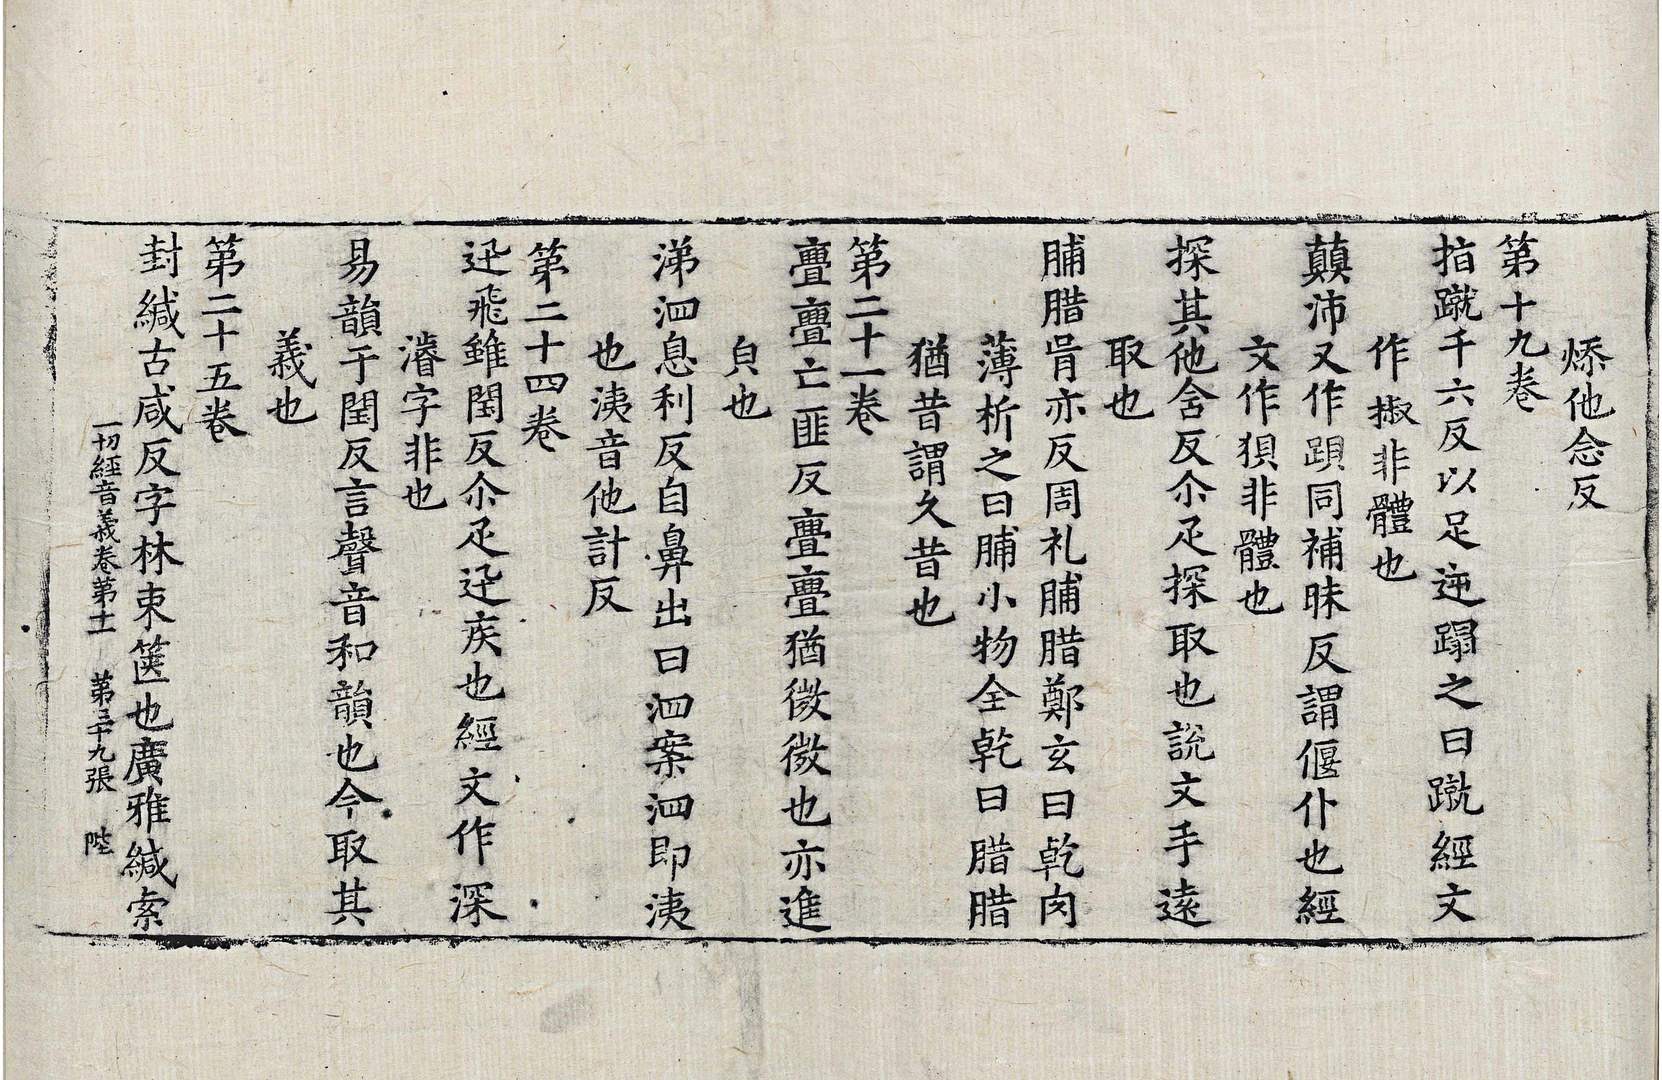 㷇他念反
第十九卷
指蹴千六反以足逆蹋之曰蹴經文
作掓非體也
顛沛又作䠽同補昧反謂偃仆也經
文作狽非體也
探其他含反尒疋探取也說文手遠
取也
脯腊胥亦反周礼脯腊鄭玄曰乾肉
薄析之曰脯小物全乾曰腊腊
猶昔謂久昔也
第二十一卷
亹亹亡匪反亹亹猶微微也亦進
㒵也
涕泗息利反自鼻出曰泗案泗即洟
也洟音他計反
第二十四卷
迅飛雖閏反尒疋迅疾也經文作深
濬字非也
易韻于閏反言聲音和韻也今取其
義也
第二十五卷
封緘古咸反字林束篋也廣雅緘索
一切經音義卷第十二 第三十九張 陛